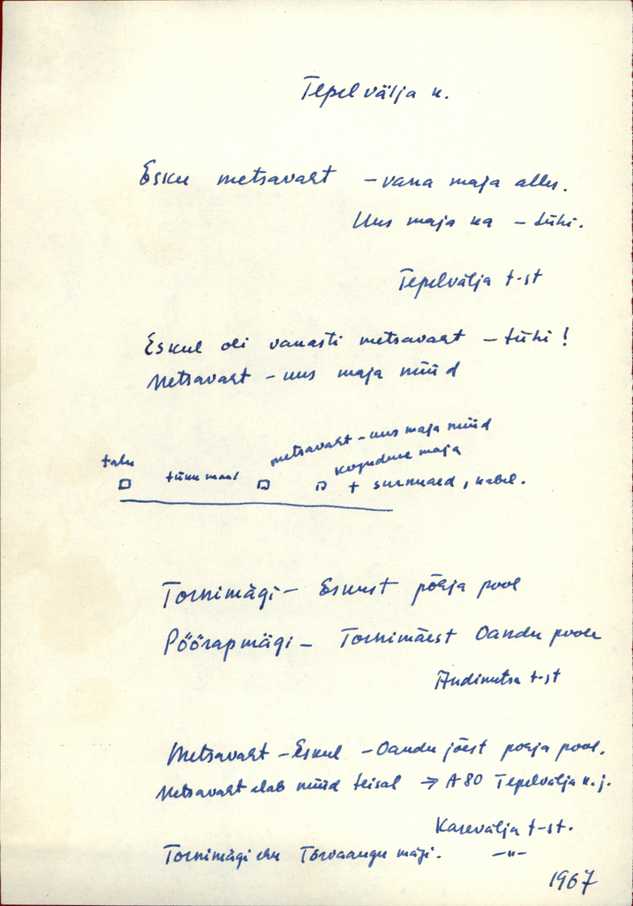 Tepelvälja k.
Esku metsavaht – vana maja alles.
Uus maja ka – tühi.
Tepelvälja t-st
Eskul oli vanasti metsavaht – tühi!
Metsavaht – uus maja nüüd
metsavaht – uus maja nüüd
talu tünn maal koguduse maja
+ surnuaed, kabel.
Tornimägi – Eskust põhja pool
Pöörapmägi – Tornimäest Oandu poole
Andimetsa t-st
Metsavaht – Eskul – Oandu jõest põhja pool.
Metsavaht elab nüüd teisal → A 80 Tepelvälja k. j.
Karevälja t-st.
Tornimägi ehk Tõrvaaugu mägi. –"–
1967